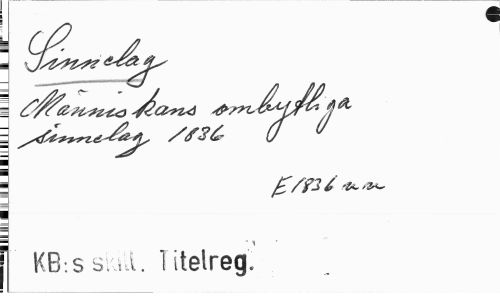 Sinnelag
Människans ombytliga
sinnelag 1836
E 1836 u u
KB:s skill. Titelreg.